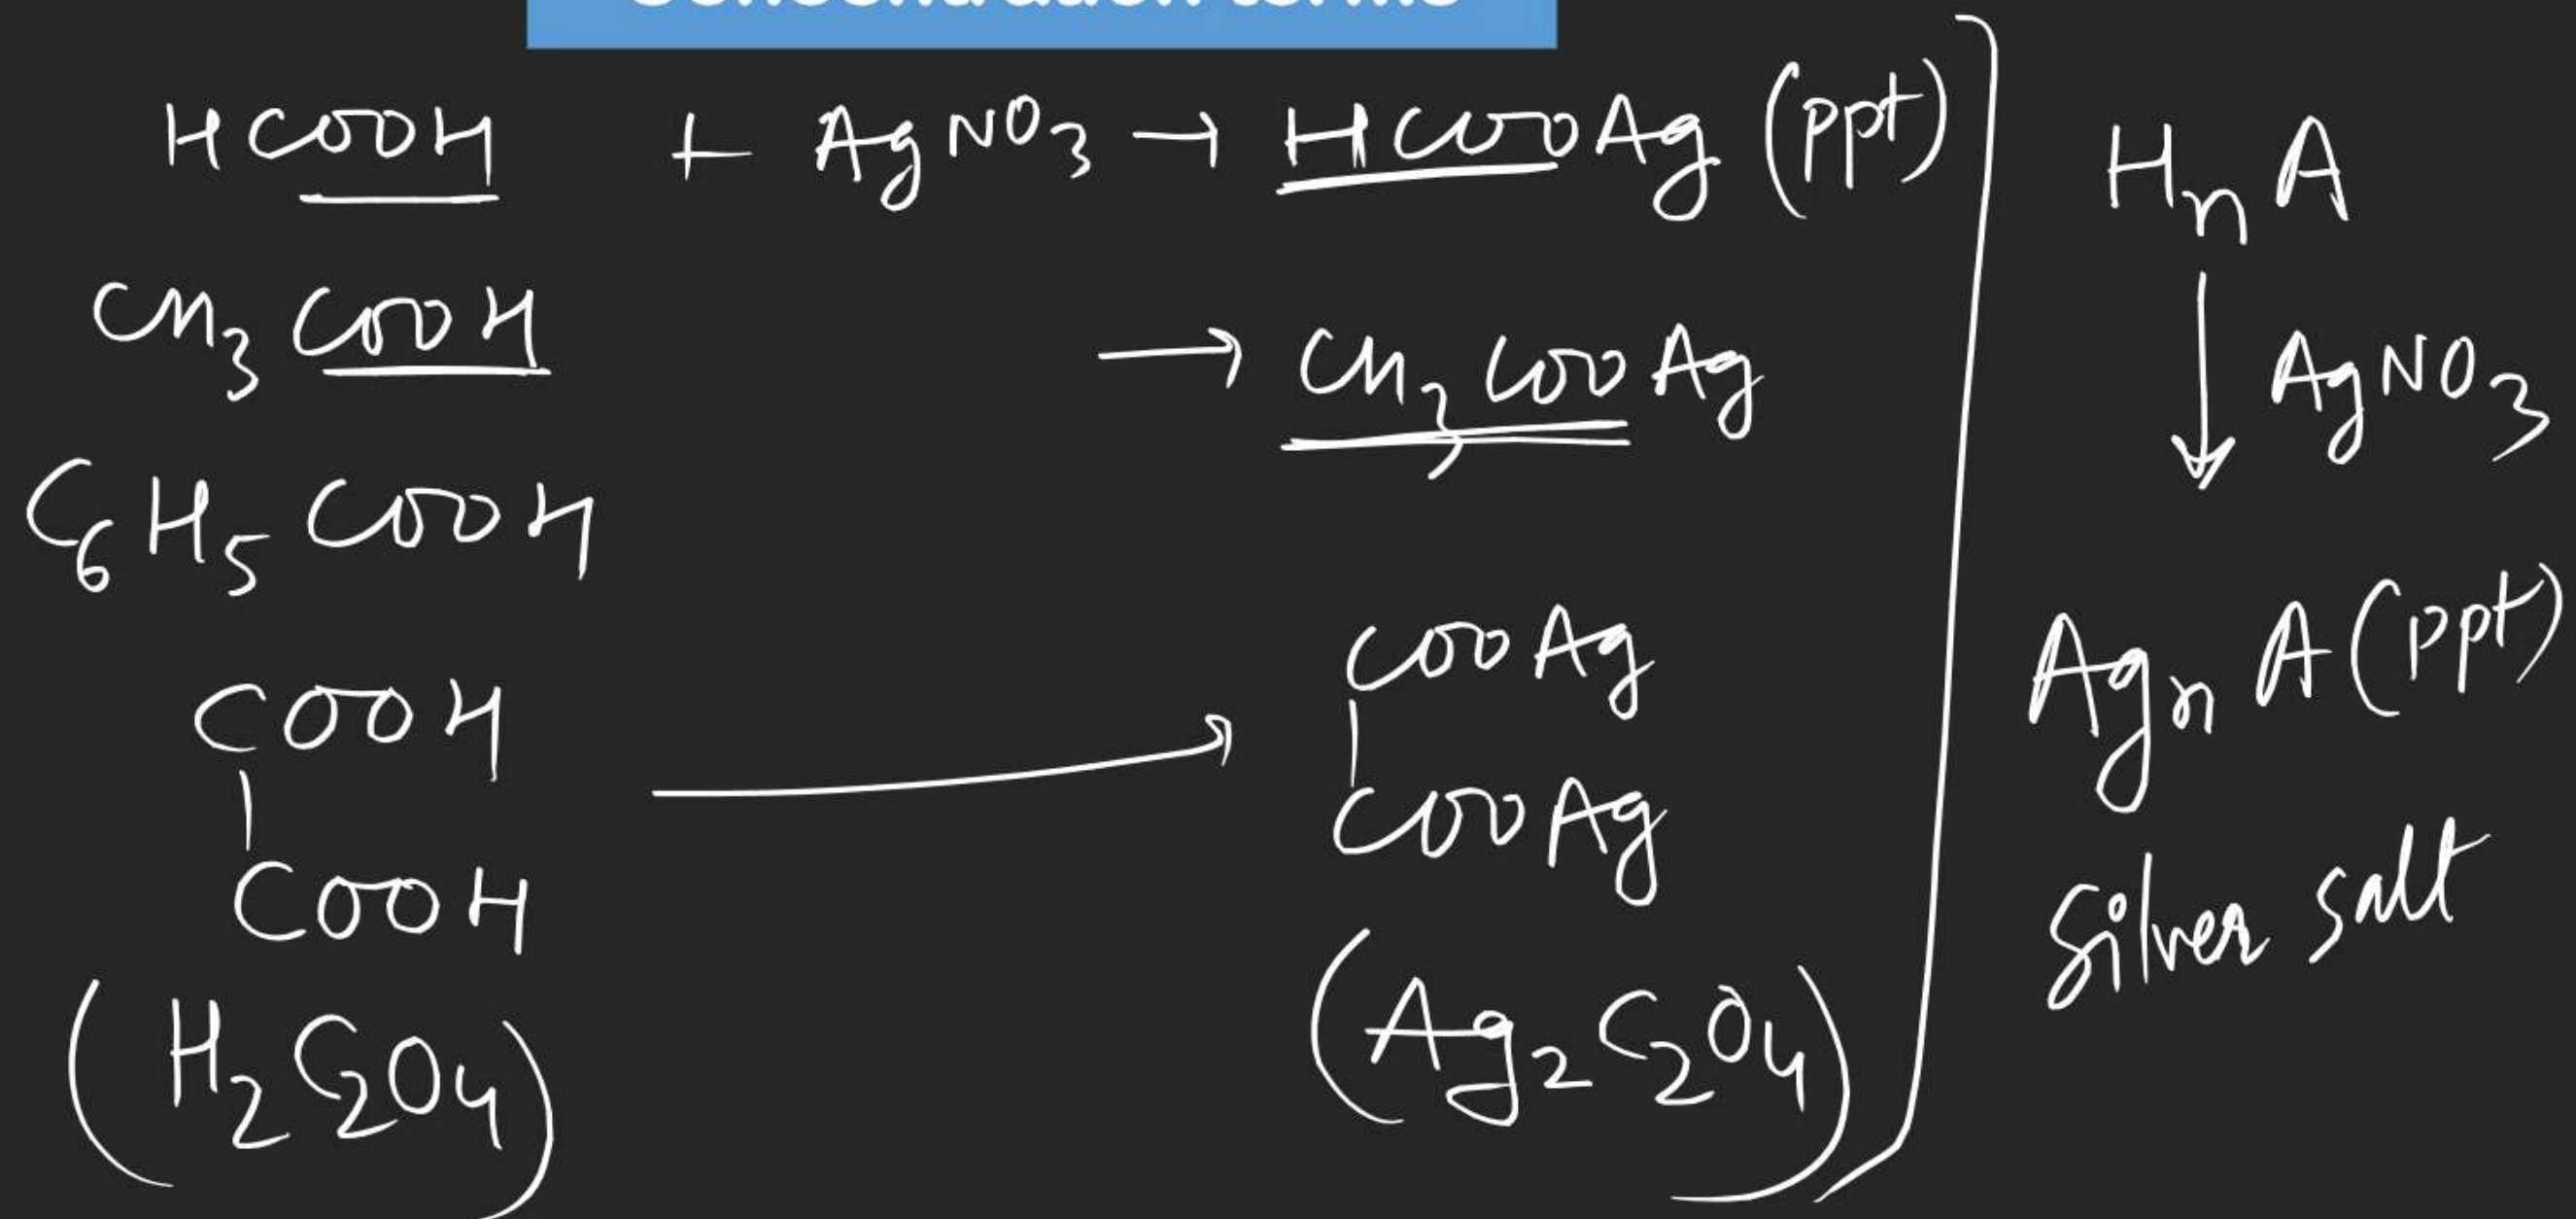 Concentration terms
HCOOH + AgNO3 → HCOOAg (ppt)
CH3COOH → CH3COOAg
C6H5COOH
COOH
|
COOH
(H2C2O4)
COOAg
|
COOAg
(Ag2C2O4)
HnA
↓ AgNO3
AgnA (ppt)
Silver salt